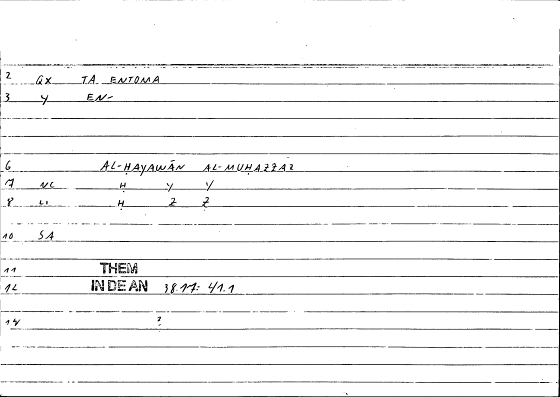 2 GX TA ENTOMA
3 Y EN-
6 AL-ḤAYAWĀN AL-MUḤAZZAZ
7 NL Ḥ Y Y
8 LI Ḥ Z Z
10 SA
11 THEM
12 IN DE AN 38.17: 41.1
14 ?